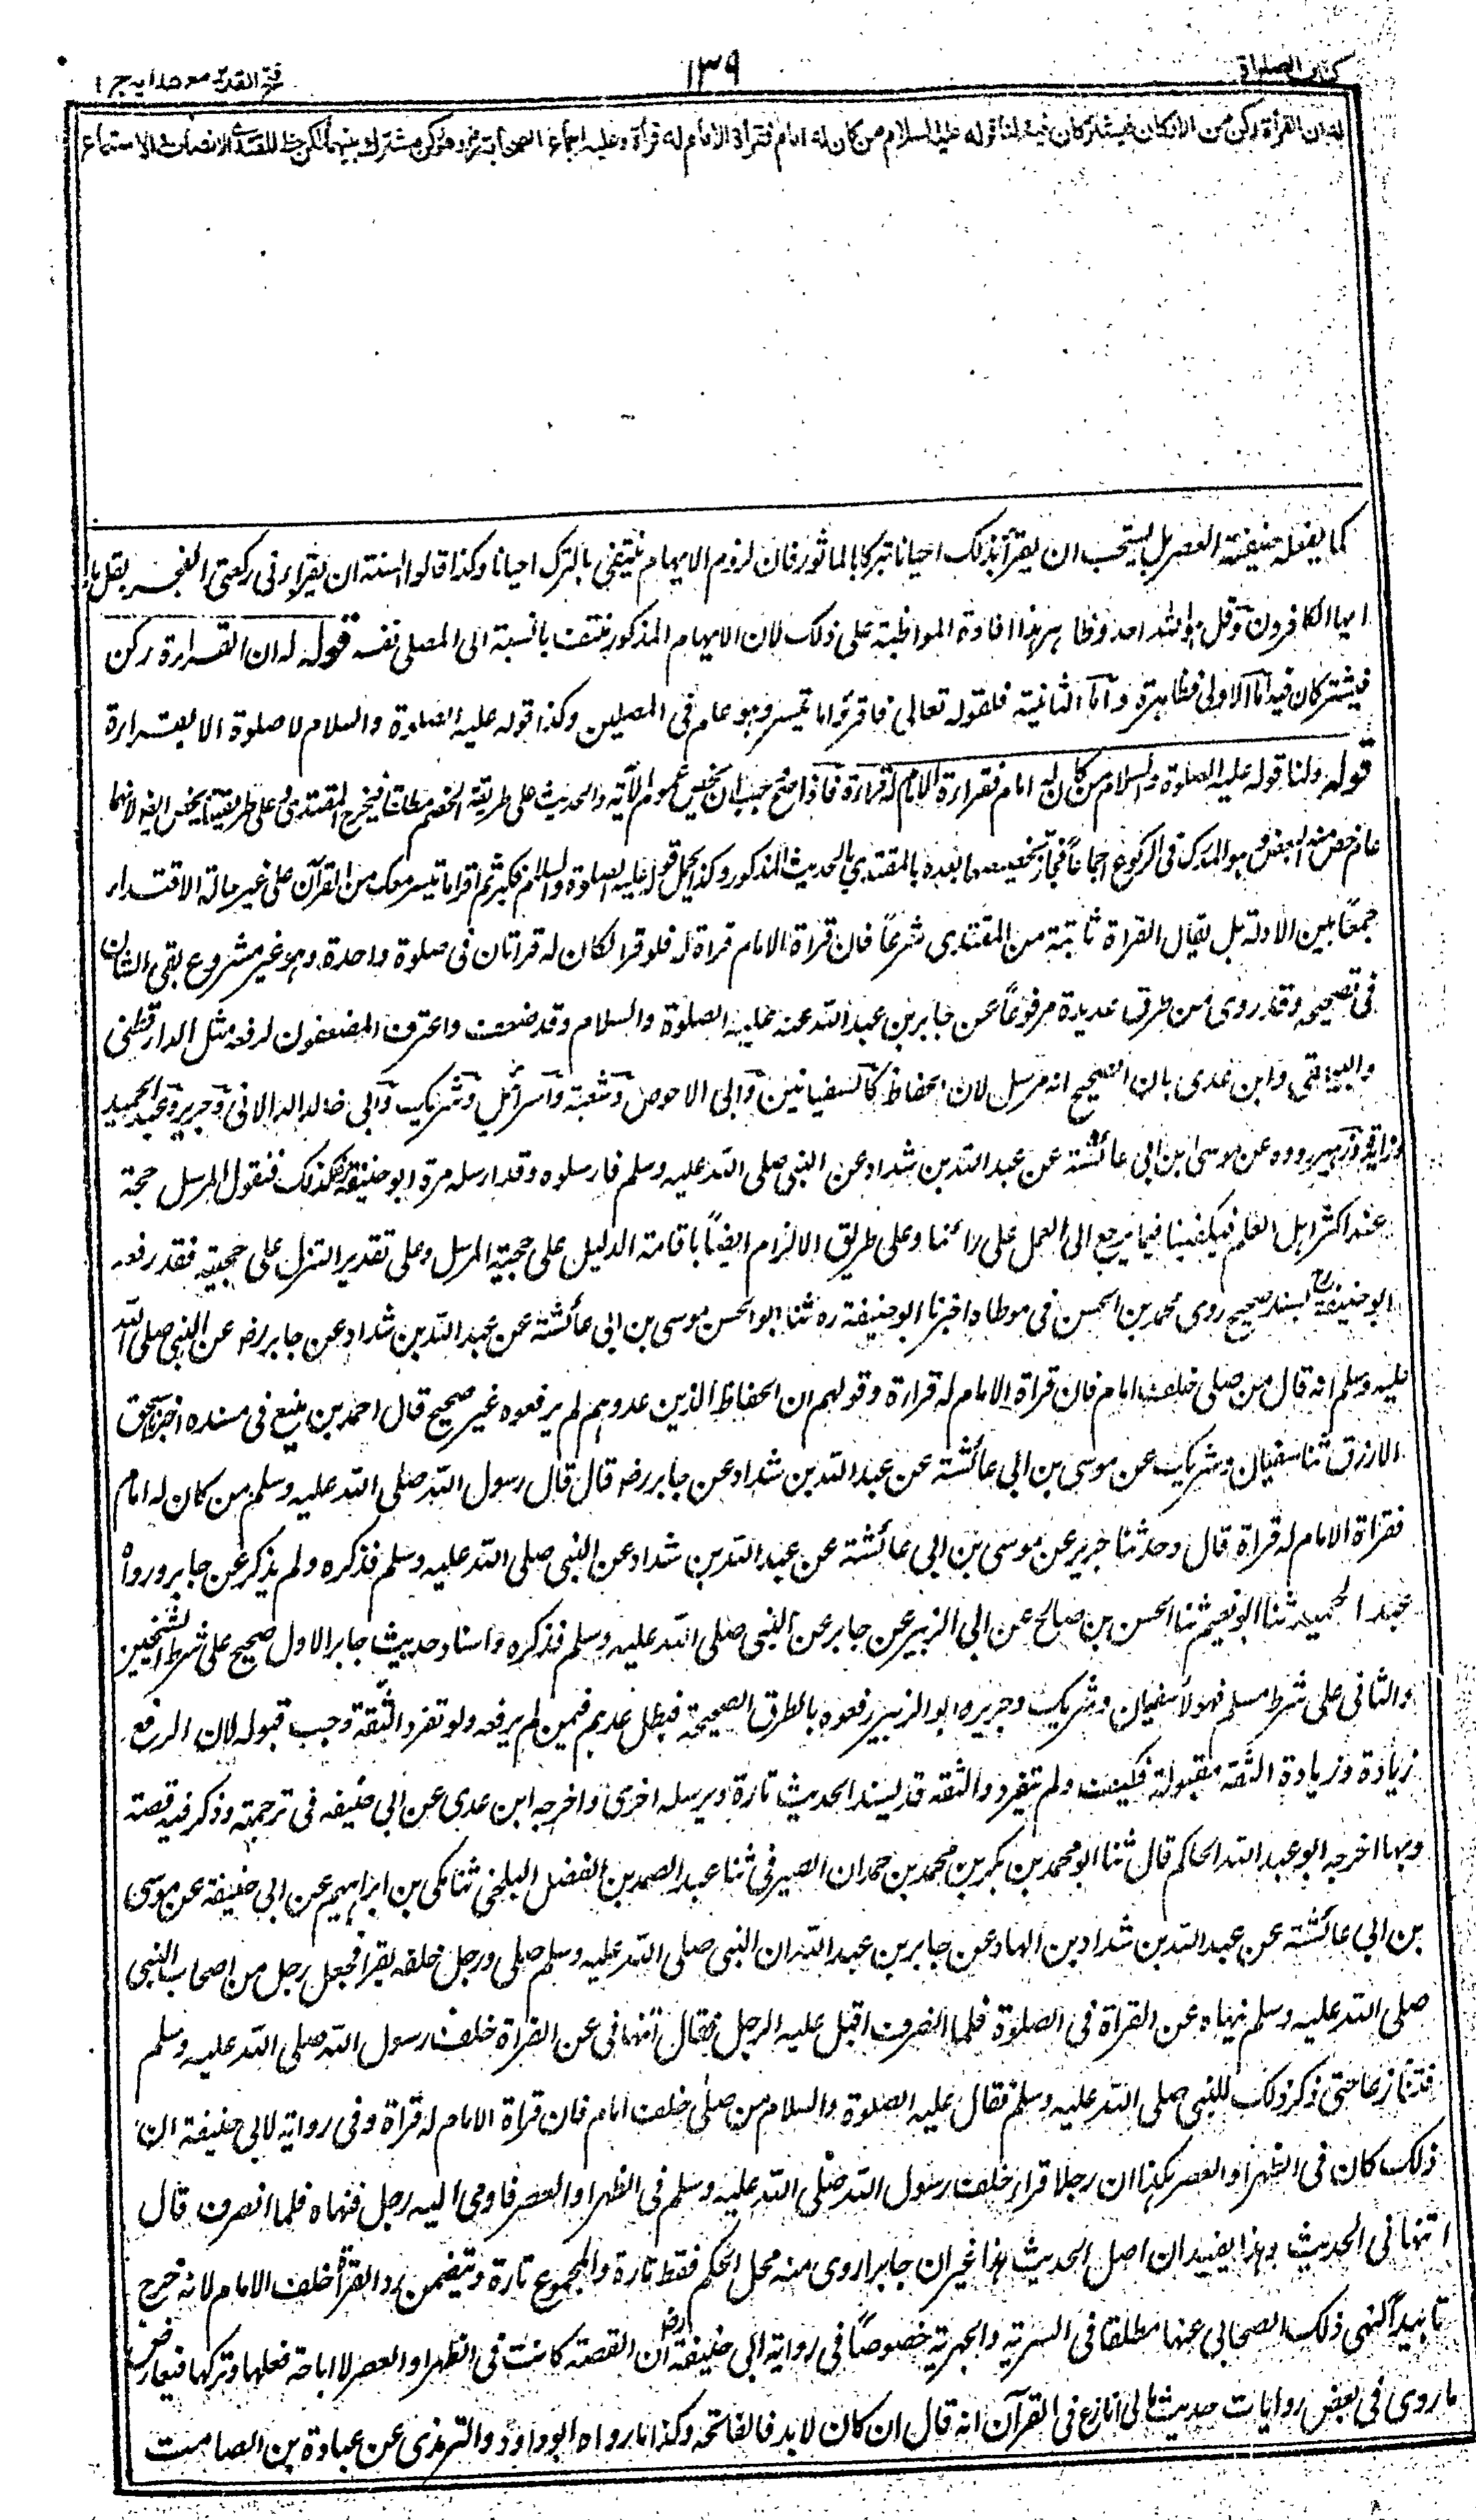 كتاب الصلوة
١٣٩
فتح القدير مع هدايه ج ١
له ان القرأة ركن من الاركان فيشتركان فيه لنا قوله عليه السلام من كان له امام فقرأة الامام له قرأة وعليه اجماع الصحابة وهو ركن مشترك بينهما لكن حظ المقتدى الانصات والاستماع
كما يفعله حنفية العصر بل يستحب ان يقرأ بذلك احيانا تبركا بالماثور فان لزوم الايهام ينتفى بالترك احيانا وكذا قالوا السنة ان يقرأ فى ركعتى الفجر بقل يا
ايها الكافرون وقل هو الله احد وظاهر هذا افادة المواظبة على ذلك لان الايهام المذكور منتف بالنسبة الى المصلى نفسه قوله له ان القراءة ركن
فيشتركان فيه اما الاولى فظاهرة واما الثانية فلقوله تعالى فاقرؤا ما تيسر وهو عام فى المصلين وكذا قوله عليه الصلوة والسلام لا صلوة الا بقراءة
قوله ولنا قوله عليه الصلوة والسلام من كان له امام فقراءة الامام له قراءة فاذا صح وجب ان يخص عموم الآية والحديث على طريقة الخصم مطلقا فيخرج المقتدى وعلى طريقتنا يخص ايضا لانهما
عام خص منه البعض وهو المدرك فى الركوع اجماعاً فجاز تخصيصهما بعده بالمقتدى بالحديث المذكور وكذا يحمل قوله عليه الصلوة والسلام فكبر ثم اقرأ ما تيسر معك من القرآن على غير حالة الاقتداء
جمعًا بين الادلة بل يقال القراة ثابتة من المقتدى شرعًا فان قراة الامام قراة له فلو قرأ لكان له قراتان فى صلوة واحدة وهو غير مشروع بقى الشان
فى تصحيحه وقد روى من طرق عديدة مرفوعاً عن جابر بن عبد الله عنه عليه الصلوة والسلام وقد ضعفت واعترف المضعفون لرفعه مثل الدارقطنى
والبيهقى وابن عدى بان الصحيح انه مرسل لان الحفاظ كالسفيانين وابى الاحوص وشعبة واسرائيل وشريك وابى خالد الدالانى وجرير وعبد الحميد
وزائدة وزهير رووه عن موسى ابن ابى عائشة عن عبد الله بن شداد عن النبى صلى الله عليه وسلم فارسلوه وقد ارسله مرة ابو حنيفة كذلك فنقول المرسل حجة
عند اكثر اهل العلم فيكفينا فيما يرجع الى العمل على رائنا وعلى طريق الالزام ايضاً باقامة الدليل على حجية المرسل وعلى تقدير التنزل على حجيته فقد رفعه
ابو حنيفة رح بسند صحيح روى محمد بن الحسن فى موطاه اخبرنا ابو حنيفة ره ثنا ابو الحسن موسى بن ابى عائشة عن عبد الله بن شداد عن جابر رض عن النبى صلى الله
عليه وسلم انه قال من صلى خلف امام فان قراة الامام له قراءة وقولهم ان الحفاظ الذين عدوهم لم يرفعوه غير صحيح قال احمد بن منيع فى مسنده اخبرنا اسحق
الازرق ثنا سفيان وشريك عن موسى بن ابى عائشة عن عبد الله بن شداد عن جابر رض قال قال رسول الله صلى الله عليه وسلم من كان له امام
فقراة الامام له قراة قال وحدثنا جرير عن موسى بن ابى عائشة عن عبد الله بن شداد عن النبى صلى الله عليه وسلم فذكره ولم يذكر عن جابر ورواه
عبد الحميد ثنا ابو نعيم ثنا الحسن بن صالح عن ابى الزبير عن جابر عن النبى صلى الله عليه وسلم فذكره واسناد حديث جابر الاول صحيح على شرط الشيخين
والثانى على شرط مسلم فهولاء سفيان وشريك وجرير وابو الزبير رفعوه بالطرق الصحيحة فبطل عدهم فيمن لم يرفعه ولو تفرد الثقة وجب قبوله لان الرفع
زيادة وزيادة الثقة مقبولة فكيف ولم يتفرد والثقه قد يسند الحديث تارة ويرسله اخرى واخرجه ابن عدى عن ابى حنيفه فى ترجمته وذكر فيه قصة
وبها اخرجه ابو عبد الله الحاكم قال ثنا ابو محمد بن بكر بن محمد بن حمدان الصيرفى ثنا عبد الصمد بن الفضل البلخى ثنا مكى بن ابراهيم عن ابى حنيفة عن موسى
بن ابى عائشة عن عبد الله بن شداد بن الهاد عن جابر بن عبد الله ان النبى صلى الله عليه وسلم صلى ورجل خلفه يقرأ فجعل رجل من اصحاب النبى
صلى الله عليه وسلم ينهاه عن القراة فى الصلوة فلما انصرف اقبل عليه الرجل فقال اتنهانى عن القراة خلف رسول الله صلى الله عليه وسلم
فتنازعا حتى ذكر ذلك للنبى صلى الله عليه وسلم فقال عليه الصلوة والسلام من صلى خلف امام فان قراة الامام له قراة وفى رواية لابى حنيفة ان
ذلك كان فى الظهر او العصر هكذا ان رجلا قرأ خلف رسول الله صلى الله عليه وسلم فى الظهر او العصر فاومى اليه رجل فنهاه فلما انصرف قال
اتنهانى الحديث وهذا يفيد ان اصل الحديث هذا غير ان جابرا روى منه محل الحكم فقط تارة والمجموع تارة ويتضمن رد القرأة خلف الامام لانه خرج
تاييداً لنهى ذلك الصحابى عنها مطلقا فى السرية والجهرية خصوصاً فى رواية ابى حنيفة رض ان القصة كانت فى الظهر او العصر لا اباحة فعلها وتركها فيعارض
ما روى فى بعض روايات حديث مالى انازع فى القرآن انه قال ان كان لابد فالفاتحة وكذا ما رواه ابو داود والترمذى عن عبادة بن الصامت